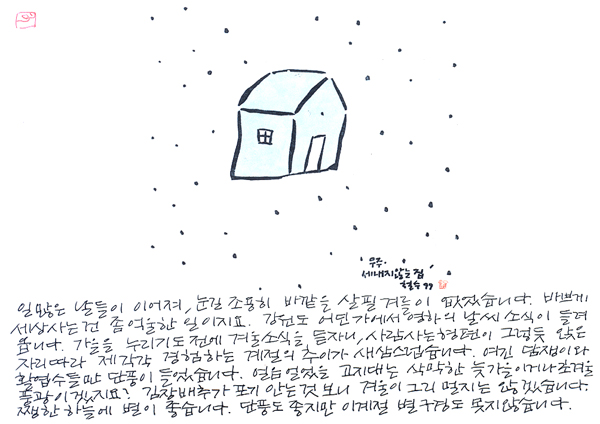 우주.
세내지않는 집
철수 99
일 많은 날들이 이어져, 눈길 조용히 바깥을 살필 겨를이 없었습니다. 바쁘게
세상사는건 좀 여울한 일이지요. 강원도 어딘가에서 영하의 날씨 소식이 들려
옵니다. 가을을 누리기도 전에 겨울소식을 듣자니, 사람사는 형편이 그렇듯 앉은
자리따라 제각각 경험하는 계절의 추이가 새삼스럽습니다. 여긴 담쟁이와
활엽수들만 단풍이 들었습니다. 얼음 얼었을 고지대는 삭막한 늦가을이거나 초겨울
풍광이겠지요? 김장배추가 포기 안는 것 보니 겨울이 그리 멀지는 않겠습니다.
쨍한 하늘에 별이 좋습니다. 단풍도 좋지만 이계절 별구경도 못지않습니다.